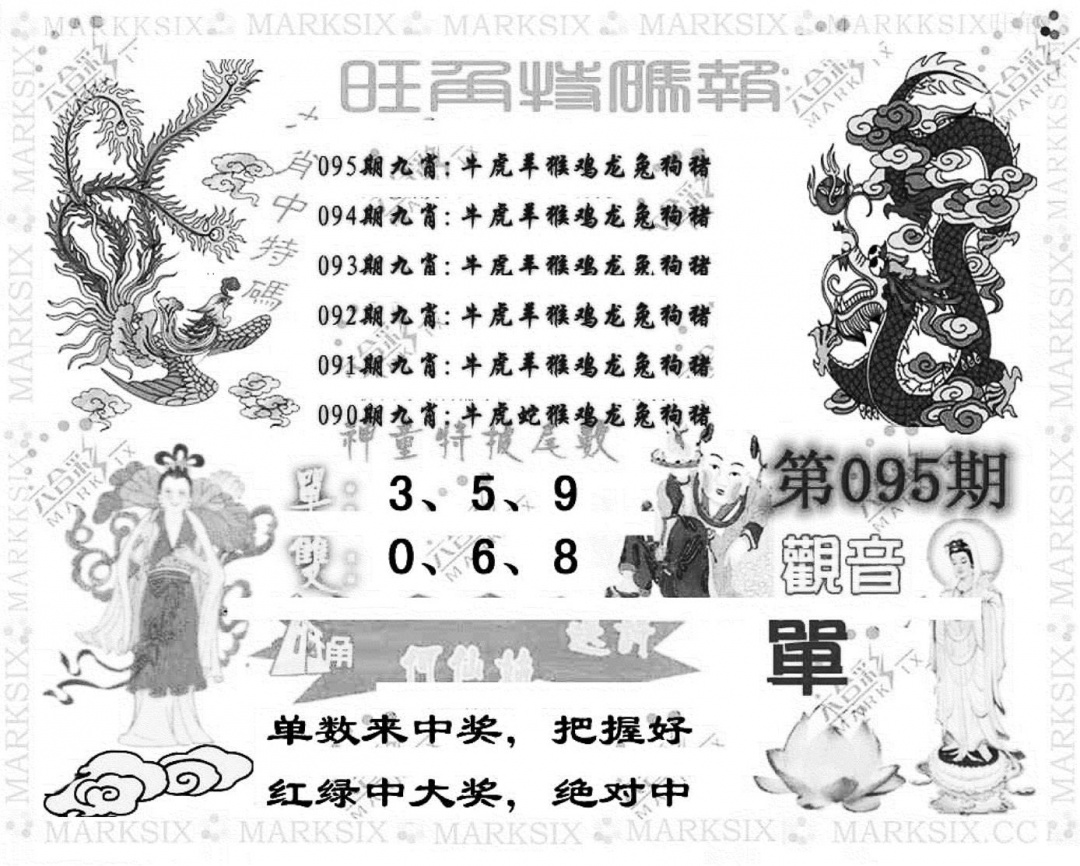 MARKKSIX MARKSIX MARKSIX MARKSIX MARKKSIX
旺角特碼報
肖中特碼
095期九肖:牛虎羊猴鸡龙兔狗猪
094期九肖:牛虎羊猴鸡龙兔狗猪
093期九肖:牛虎羊猴鸡龙兔狗猪
092期九肖:牛虎羊猴鸡龙兔狗猪
091期九肖:牛虎羊猴鸡龙兔狗猪
090期九肖:牛虎蛇猴鸡龙兔狗猪
神童特披尾數
單: 3、5、9
雙: 0、6、8
第095期
觀音
單
何仙姑
单数来中奖，把握好
红绿中大奖，绝对中
MARKSIX MARKSIX MARKSIX MARKSIX MARKSIX.CC